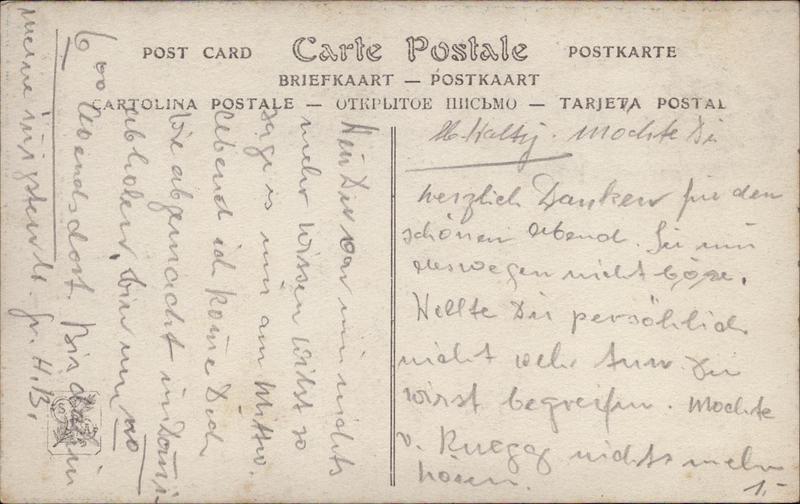 POST CARD Carte Postale POSTKARTE
BRIEFKAART — POSTKAART
CARTOLINA POSTALE — ОТКРЫТОЕ ПИСЬМО — TARJETA POSTAL
Möchte Dir
herzlich Danken für den
schönen Abend. Sei mir
deswegen nicht böse.
Wollte Dir persöhlich
nicht weh tun. Du
wirst begreifen. Möchte
v. Ruegg nichts mehr
hören.
1.-
Wen Du von mir nichts
mehr wissen willst so
sage es mir am Mittw.
Abend ich kome Dich
wie abgemacht
abholen, bin um
6 00 Abends dort. Bin
meine H.B.